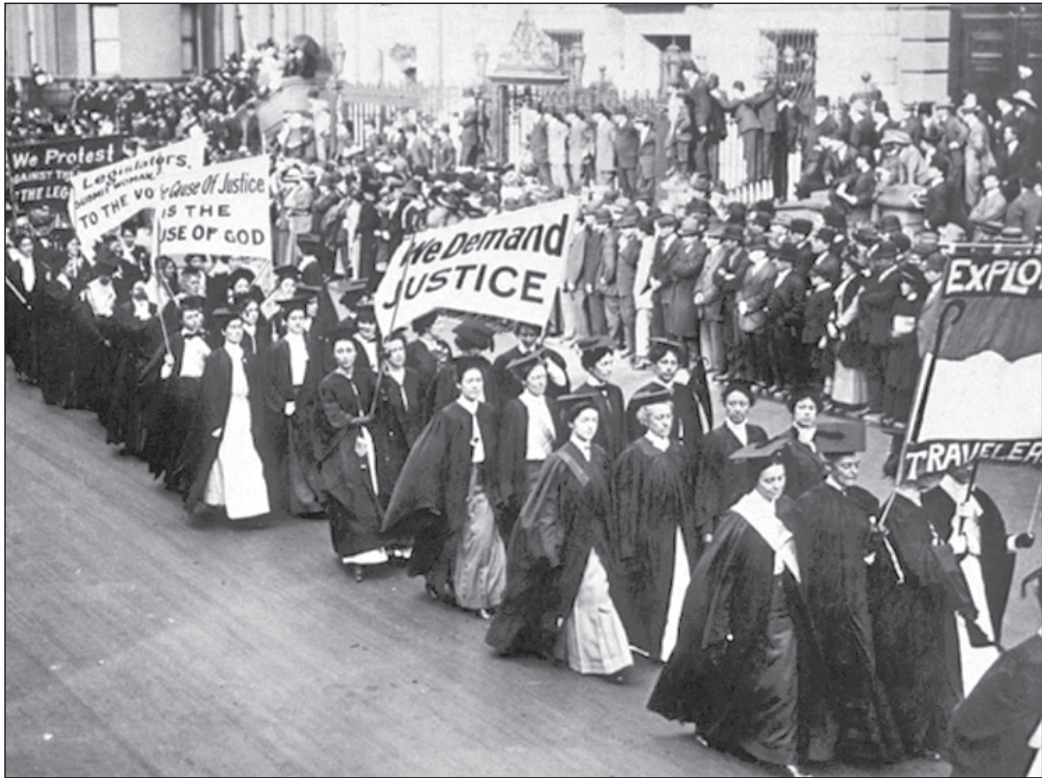 We Protest
AGAINST THE
"THE LEG
Legislators,
TO THE VO
Cause Of Justice
IS THE
USE OF GOD
We Demand
JUSTICE
EXPLO
TRAVELER